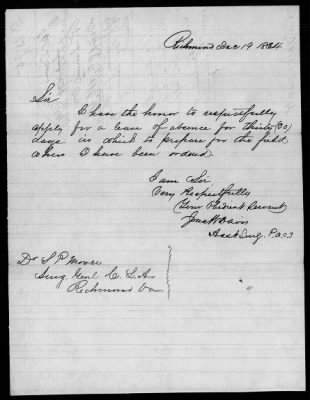 Richmond Dec 19 1864
Sir
I have the honor to respectfully
apply for a leave of absence for thirty (30)
days in which to prepare for the field
where I have been ordered.
I am Sir
Very Respectfully
Your Obedient Servant
Davis
Asst Surg. P.A.C.S
Dr S P Moore
Surg Genl C. S. A
Richmond Va